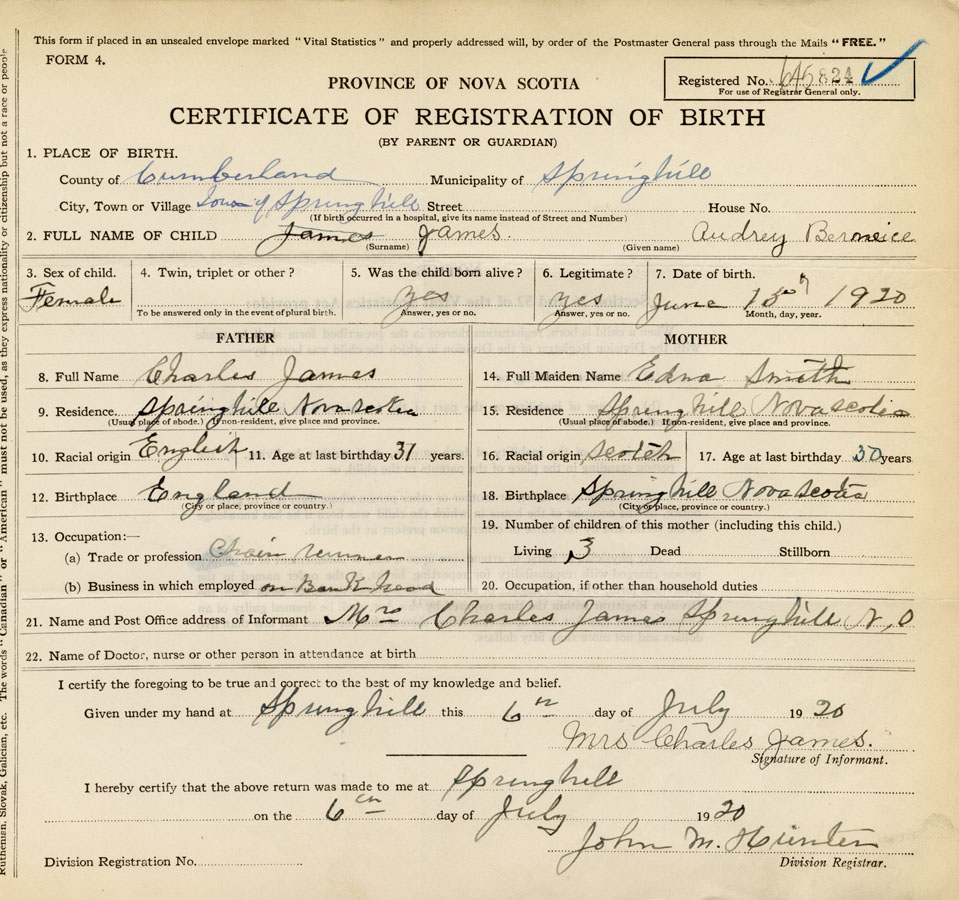 This form if placed in an unsealed envelope marked "Vital Statistics" and properly addressed will, by order of the Postmaster General pass through the Mails "FREE."
FORM 4.
Registered No. 645824
For use of Registrar General only.
PROVINCE OF NOVA SCOTIA
CERTIFICATE OF REGISTRATION OF BIRTH
(BY PARENT OR GUARDIAN)
1. PLACE OF BIRTH.
County of Cumberland Municipality of Springhill
City, Town or Village Town of Springhill Street House No.
(If birth occurred in a hospital, give its name instead of Street and Number)
2. FULL NAME OF CHILD James James. Audrey Berneice
(Surname) (Given name)
3. Sex of child. 4. Twin, triplet or other? 5. Was the child born alive? 6. Legitimate? 7. Date of birth.
Female yes yes June 15th 1920
To be answered only in the event of plural birth. Answer, yes or no. Answer, yes or no. Month, day, year.
FATHER MOTHER
8. Full Name Charles James 14. Full Maiden Name Edna Smith
9. Residence. Springhill Nova scotia 15. Residence Springhill Nova scotia
(Usual place of abode.) If non-resident, give place and province. (Usual place of abode.) If non-resident, give place and province.
10. Racial origin English 11. Age at last birthday 31 years. 16. Racial origin scotch 17. Age at last birthday 30 years
12. Birthplace England 18. Birthplace Springhill Nova scotia
(City or place, province or country.) (City or place, province or country.)
13. Occupation:— 19. Number of children of this mother (including this child.)
(a) Trade or profession Chain runner Living 3 Dead Stillborn
(b) Business in which employed on Bank head 20. Occupation, if other than household duties
21. Name and Post Office address of Informant Mrs Charles James Springhill N,
22. Name of Doctor, nurse or other person in attendance at birth
I certify the foregoing to be true and correct to the best of my knowledge and belief.
Given under my hand at Springhill this 6th day of July 1920
Mrs Charles James.
Signature of Informant.
I hereby certify that the above return was made to me at Springhill
on the 6th day of July 1920
John M. Hunter
Division Registration No. Division Registrar.
Ruthenian, Slovak, Galician, etc. The words "Canadian" or "American" must not be used, as they express nationality or citizenship but not a race or people